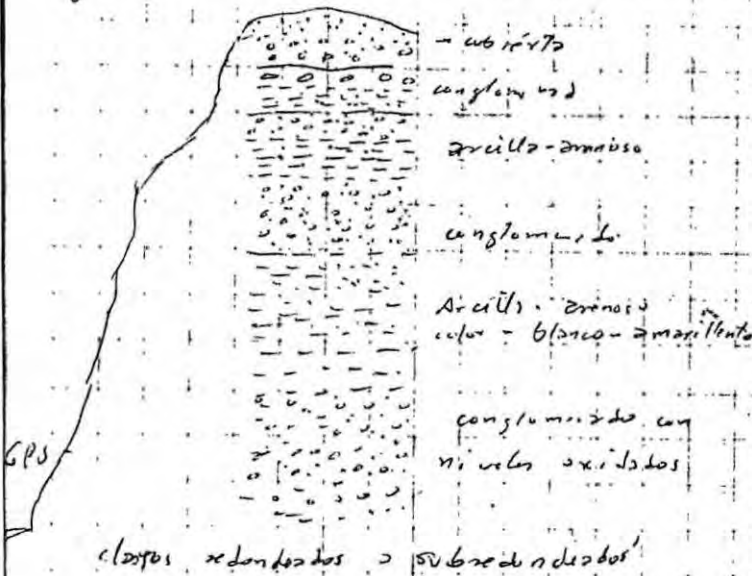 - cubierta
conglomerad
arcilla-arenoso
conglomerado
Arcilla - arenoso
color - blanco - amarillento
conglomerado con
niveles oxidados
GPS
clastos redondeados a subredondeados